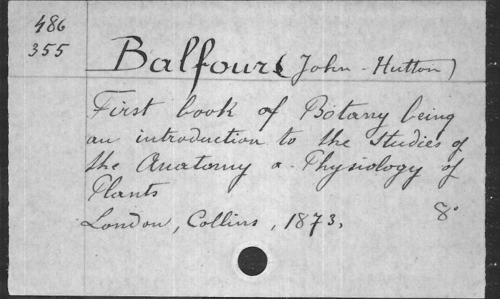 486
355
Balfour (John-Hutton)
First book of Botany being
an introduction to the Studies of
the Anatomy a. Physiology of
Plants
London, Collins, 1873. 8°